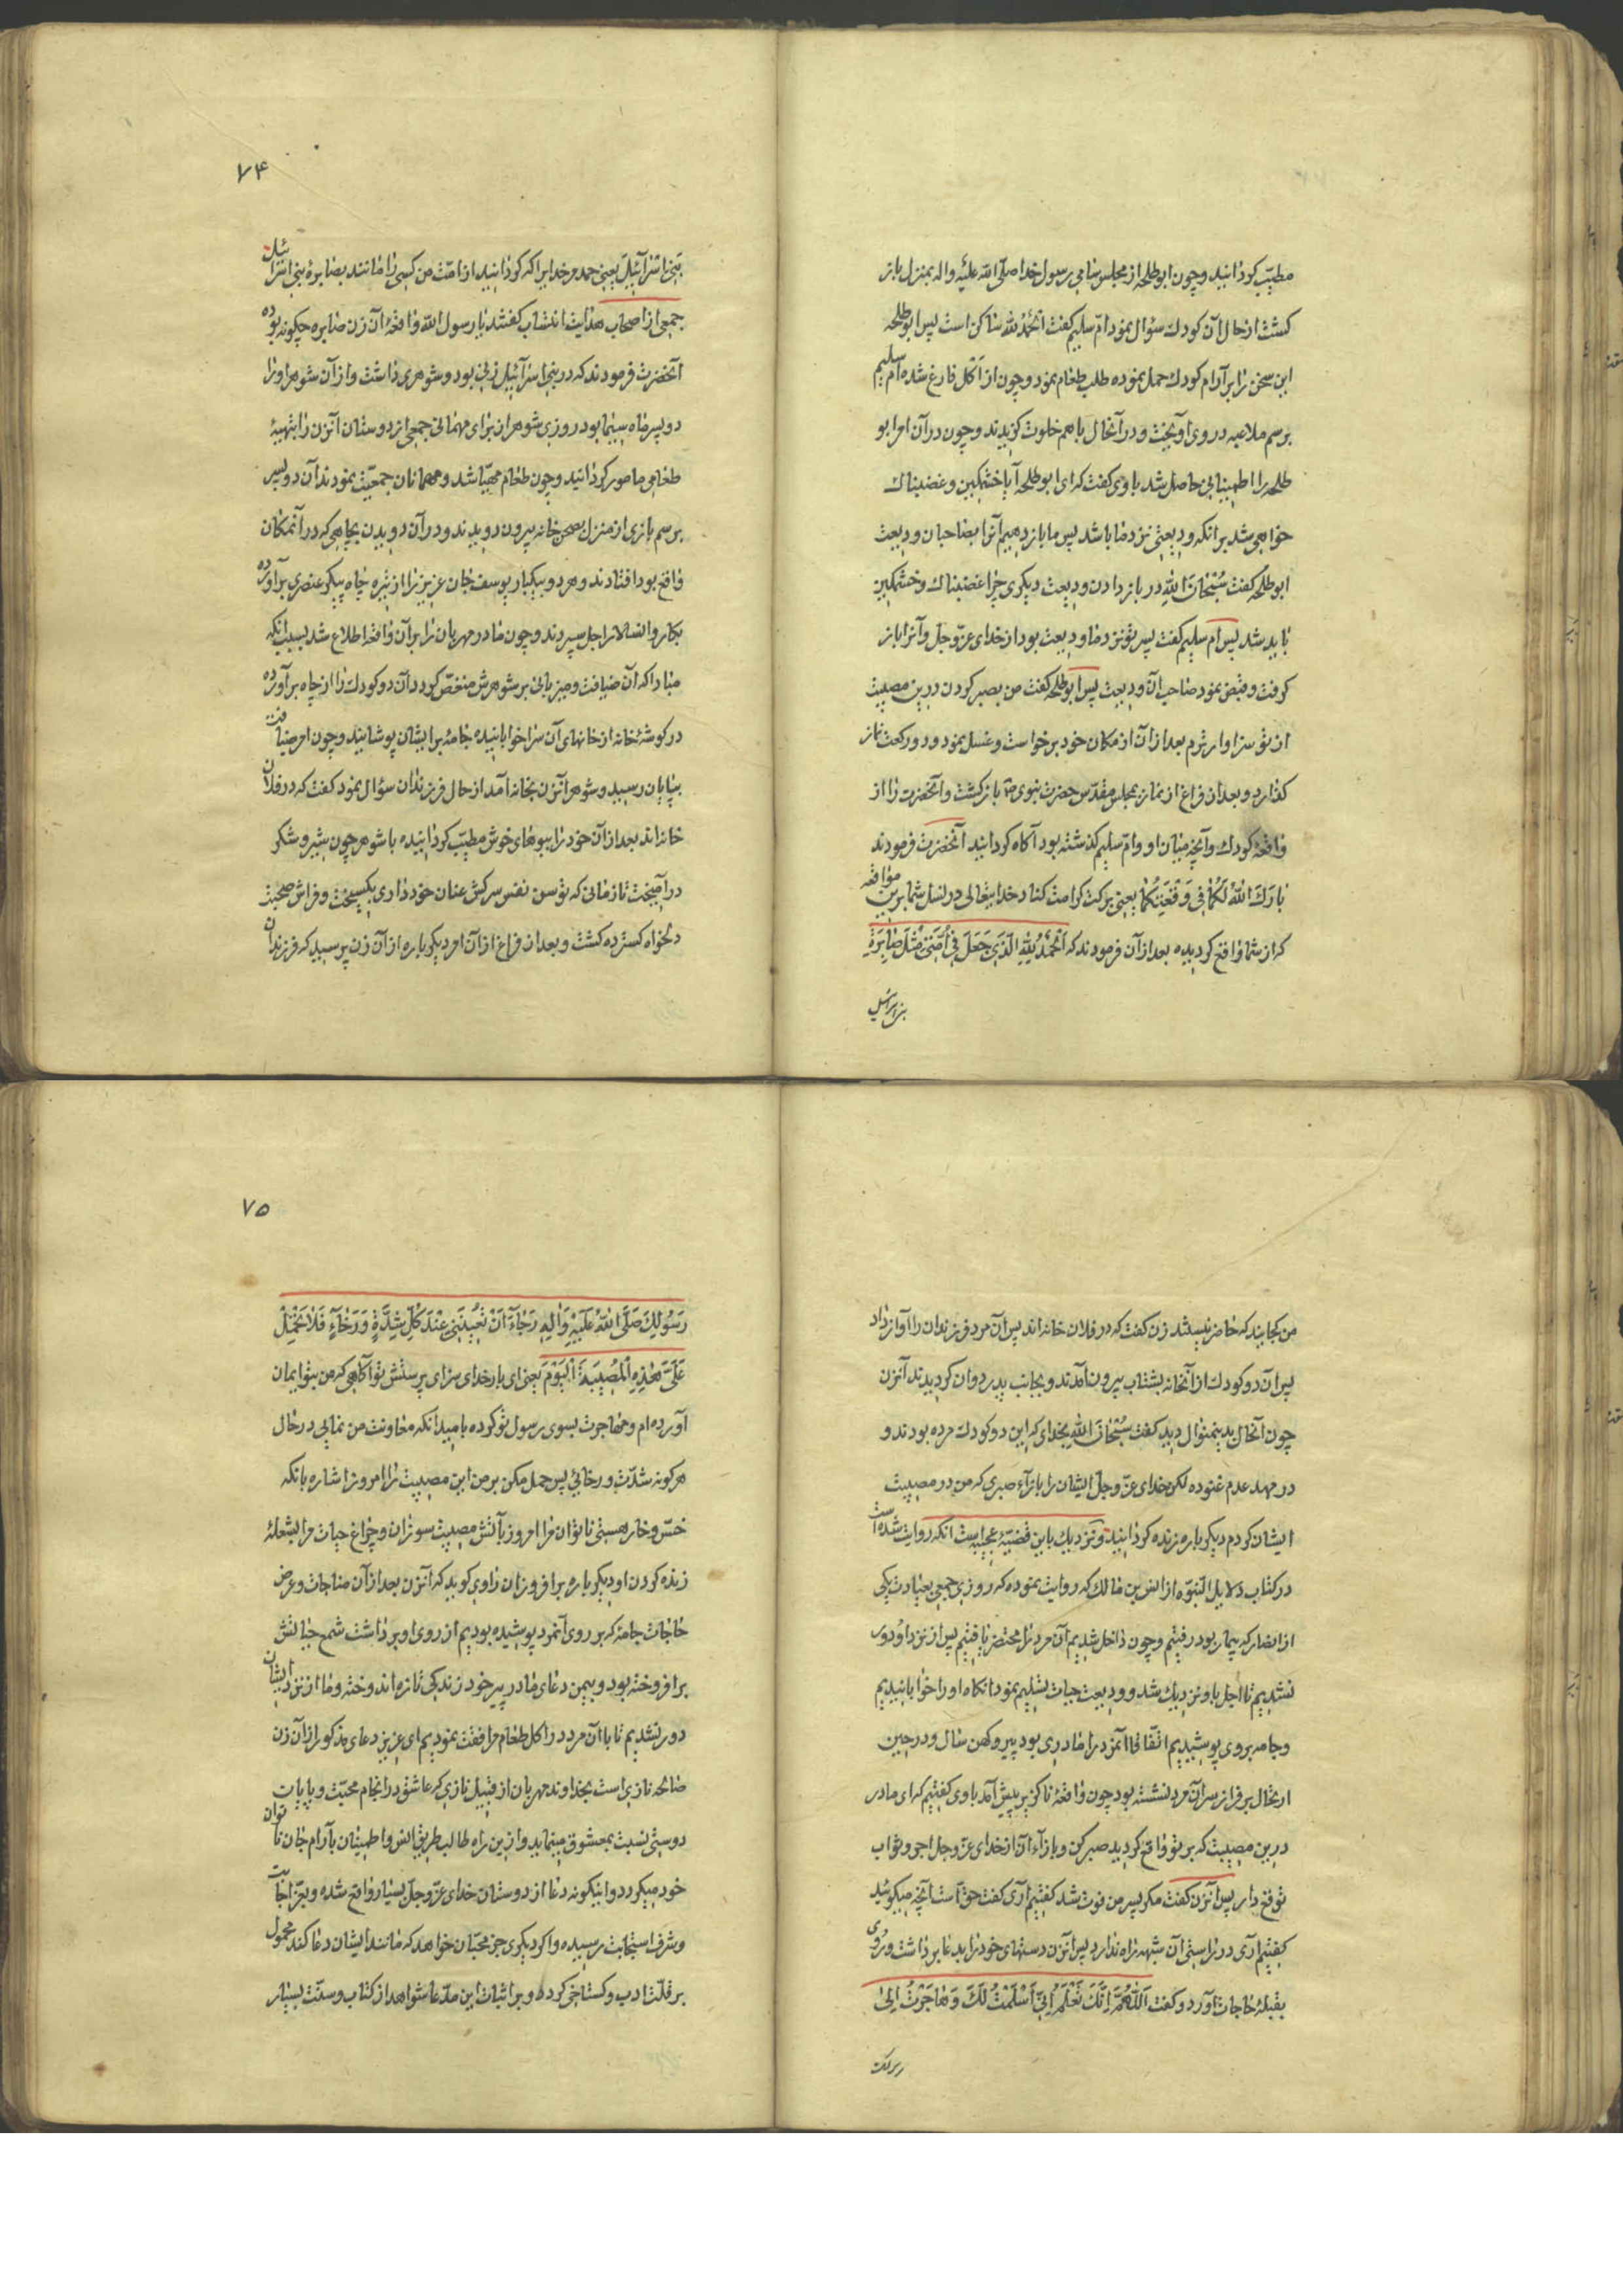 مطیّب کردانید وچون ابوطلحه از مجلس سامی رسول خدا صلّی اللّه علیه واله بمنزل باز
کشت از حال آن کودك سؤال نمود امّ سلیم کفت اَلْحَمْدُ لِلّٰه ساکن است پس ابوطلحه
این سخن را بر آرام کودك حمل نموده طلب طعام نمود وچون از اکل فارغ شد امّ سلیم
برسم ملاعبه در وی آویخت ودر آنحال باهم خلوت کزیدند وچون در آن امر ابو
طلحه را اطمینانی حاصل شد باوی کفت که ای ابوطلحه آیا خشمکین وغضبناك
خواهی شد برانکه ودیعتی نزد ما باشد پس ما باز دهیم آنرا بصاحبان ودیعت
ابوطلحه کفت سُبْحٰانَ اللّٰهِ در باز دادن ودیعت دیکری چرا غضبناك وخشمکین
باید شد پس ام سلیم کفت پسر تو نزد ما ودیعت بود از خدای عزّ وجلّ وآنرا باز
کرفت وقبض نمود صاحب آن ودیعت پس ابوطلحه کفت من بصبر کردن درین مصیبت
از تو سزاوارترم بعد از آن از مکان خود برخواست وغسل نمود ودو رکعت نماز
کذارد وبعد از فراغ از نماز بمجلس مقدّس حضرت نبوی ص باز کشت وآنحضرت را از
واقعهٔ کودك وآنچه میان او وامّ سلیم کذشته بود آکاه کردانید آنحضرت فرمودند
بٰارَكَ اللّٰهُ لَكُمٰا فِی وَقْعَتِكُمٰا یعنی برکت کرامت کناد خدایتعالی در نسل شما برین مواقعه
که از شما واقع کردیده بعد از آن فرمودند که اَلْحَمْدُ لِلّٰهِ الَّذِی جَعَلَ فِی اُمَّتِی مِثْلَ صٰابِرَةِ
بنی اسرائیل
۷۴
بَنِی اِسْرٰآئِیلَ یعنی حمد مر خدایرا که کردانید از امّت من کسی را مانند صابرهٔ بنی اسرائیل
جمعی از اصحاب هدایت انتساب کفتند یا رسول اللّه واقعهٔ آن زن صابره چکونه بوده
آنحضرت فرمودند که در بنی اسرآئیل زنی بود وشوهری داشت واز آن شوهر اورا
دو پسر ماه سیما بود روزی شوهر از برای مهمانی جمعی از دوستان آنزن را بتهیهٔ
طعامی مامور کردانید وچون طعام مهیّا شد ومهمانان جمعیّت نمودند آن دو پسر
برسم بازی از منزل بصحن خانه بیرون دویدند ودر آن دویدن بچاهی که در آنمکان
واقع بود افتادند وهر دو بیکبار یوسف جان عزیز را از تیره چاه پیکر عنصری برآورده
بکاروانسالار اجل سپردند وچون مادر مهربان را بر آن واقعه اطلاع شد بسبب انکه
مبادا که آن ضیافت ومیزبانی بر شوهرش منغّص کردد آن دو کودك را از چاه برآورده
در کوشهٔ خانه از خانهای آن سرا خوابانیده جامه بر ایشان پوشانید وچون امر ضیافت
بپایان رسید وشوهر آنزن بخانه آمد از حال فرزندان سؤال نمود کفت که در فلان
خانه اند بعد از آن خود را ببوهای خوش مطیّب کردانیده با شوهر چون شیر وشکر
درآمیخت تا زمانی که توسن نفس سرکش عنان خود داری بکسیخت وفراش صحبت
دلخواه کسترده کشت وبعد از فراغ از آن امر دیکر باره از آن زن پرسید که فرزندان
من کجایند که حاضر نیستند زن کفت که در فلان خانه اند پس آن مرد فرزندان را آواز داد
پس آن دو کودك از آنخانه بشتاب بیرون آمدند وبجانب پدر دوان کردیدند آنزن
چون آنحال بدینمنوال دید کفت سُبْحٰانَ اللّٰهِ بخدای که این دو کودك مرده بودند و
در مهد عدم غنوده لکن خدای عزّ وجلّ ایشان را بازآء صبری که من در مصیبت
ایشان کردم دیکر باره زنده کردانید ونزدیك باین قضیّهٔ عجیبه است انکه روایت شده است
در کتاب دلایل النبوّه از انس بن مالك که روایت نموده که روزی جمعی بعیادت یکی
از انصار که بیمار بود رفتیم وچون داخل شدیم آن مرد را محتضر یافتیم پس از نزد او دور
نشدیم تا اجل باو نزدیك شد وودیعت حیات تسلیم نمود انکاه اورا خوابانیدیم
وجامه بر وی پوشیدیم اتّفاقا آنمرد را مادری بود پیر وکهن سال ودر حین
ارتحال بر فراز سر آن مرد نشسته بود چون واقعهٔ ناکزیر پیش آمد باوی کفتیم که ای مادر
درین مصیبت که بر تو واقع کردید صبر کن وبازآء آن از خدای عزّ وجلّ اجر وثواب
توقّع دار پس آنزن کفت مکر پسر من فوت شد کفتیم آری کفت حقّ است آنچه میکوئید
کفتیم آری در راستی آن شبهه راه ندارد پس آنزن دستهای خود را بدعا برداشت وروی
بقبلهٔ حاجات آورد وکفت اَللّٰهُمَّ اِنَّكَ تَعْلَمُ اَنِّی اَسْلَمْتُ لَكَ وَهٰاجَرْتُ اِلیٰ
رسولک
۷۵
رَسُولِكَ صَلَّی اللّٰهُ عَلَیْهِ وَاٰلِهِ رَجٰاءَ اَنْ تُعِینَنِی عِنْدَ كُلِّ شِدَّةٍ وَرَخٰآءٍ فَلٰا تَحْمِلْ
عَلَیَّ هٰذِهِ الْمُصِیبَةَ الْیَوْمَ یعنی ای بار خدای سزای پرستش تو آکاهی که من بتو ایمان
آورده ام ومهاجرت بسوی رسول تو کرده بامید انکه معاونت من نمایی در حال
هر کونه شدّت ورخائی پس حمل مکن بر من این مصیبت را امروز اشاره بانکه
خسّ وخار هستی ناتوان مرا امروز بآتش مصیبت مسوزان وچراغ حیات مرا بشعلهٔ
زنده کردن او دیکر باره برافروزان راوی کوید که آنزن بعد از آن مناجات وعرض
حاجات جامهٔ که بر روی آنمرد پوشیده بودیم از روی او برداشت شمع حیاتش
برافروخته بود وبیمن دعای مادر پیر خود زندکی تازه اندوخته وما از نزد ایشان
دور نشدیم تا با آن مرد در اکل طعام مرافقت نمودیم ای عزیز دعای مذکور از آن زن
صالحه نازی است بخداوند مهربان از قبیل نازی که عاشق در انجام محبّت وپایان
دوستی نسبت بمعشوق مینماید وازین راه طالب طریق انس واطمینان بآرام جان ناتوان
خود میکردد واینکونه دعا از دوستان خدای عزّ وجلّ بسیار واقع شده وبعزّ اجابت
وشرف استجابت رسیده واکر دیکری جز محبّان خواهد که مانند ایشان دعا کند محمول
بر قلّت ادب وکستاخی کردد وبر اثبات این مدّعا شواهد از کتاب وسنّت بسیار